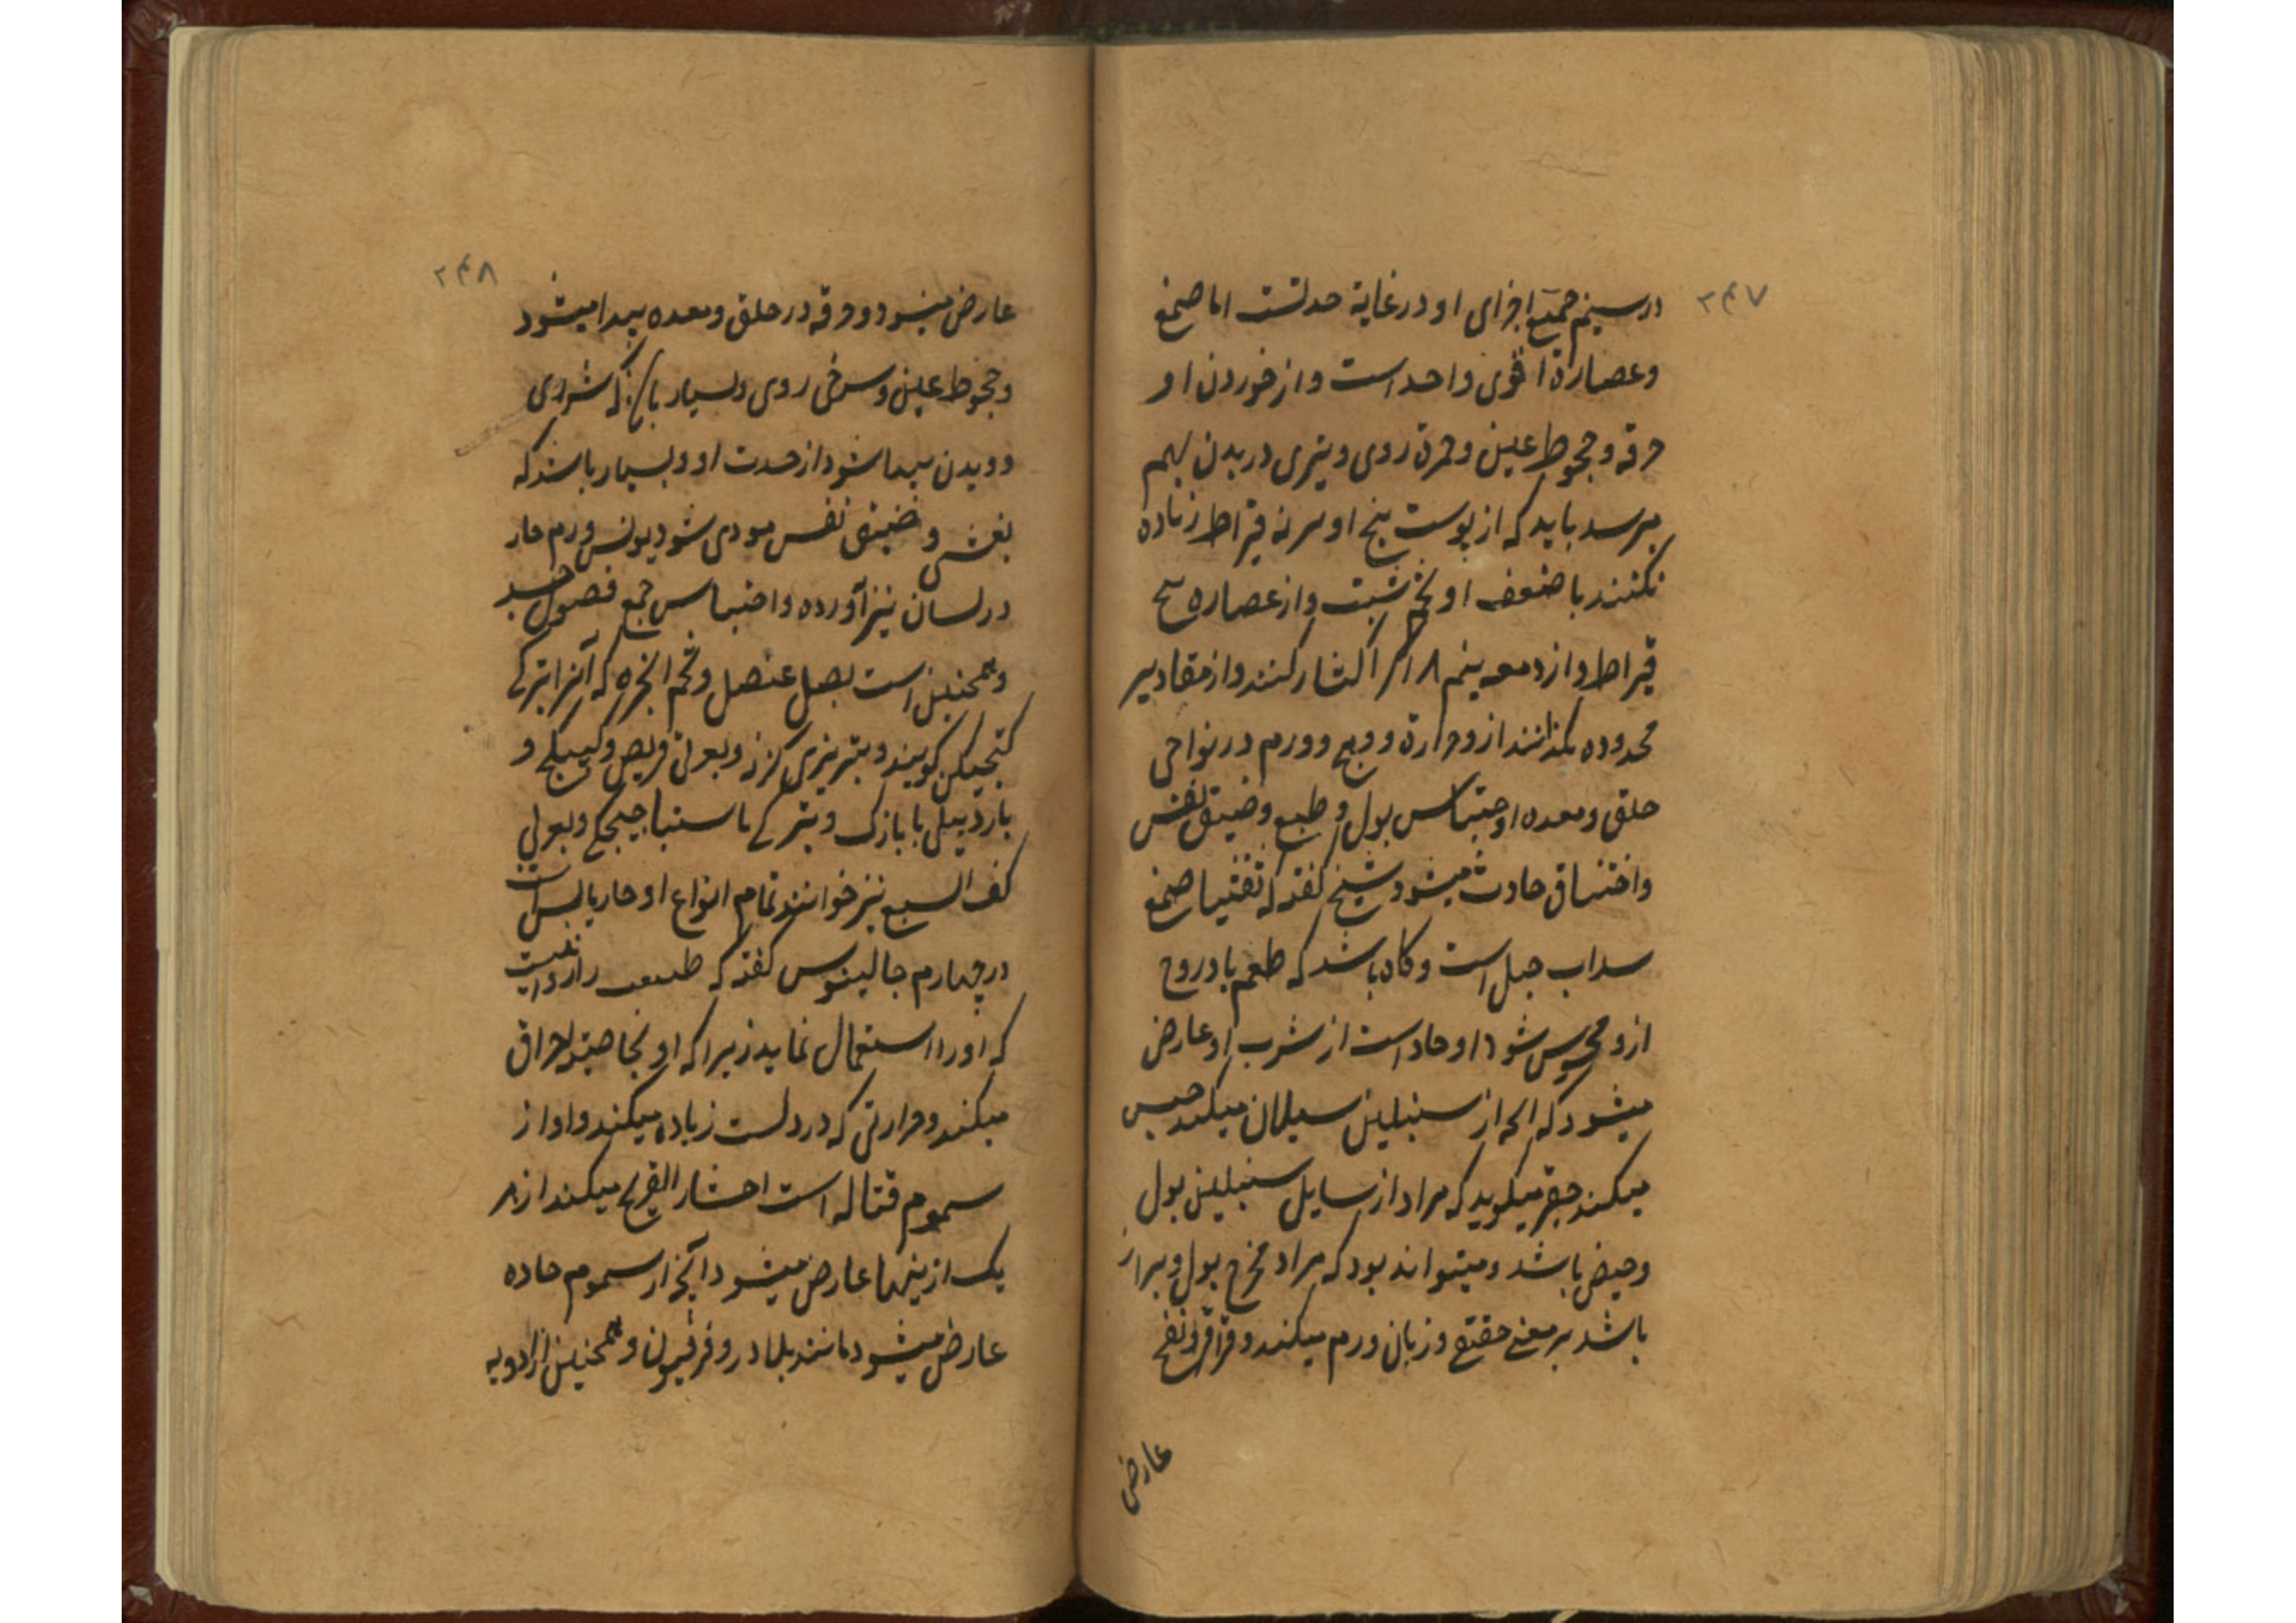 ۲۴۷
در سیم جمیع اجزای او در غایة حدتست اما صمغ
وعصارة اقوی واحد است واز خوردن او
حرقه وجحوط عین وحمرة روی وبثری در بدن بهم
برسد باید که از پوست بیخ او سر نه قیراط زیاده
نکنند با ضعف او تخم شبت واز عصاره سح
قیراط واز دمعه نیم اگر اکثار کنند واز مقادیر
محدوده بگذرانند ازو حرارة ووجع وورم در نواحی
حلق ومعده واحتباس بول وطبع وضیق نفس
واختناق حادث میشود شیخ گفته که تفتیا صمغ
سداب جبل است وگاه باشد که طعم بادروج
ازو محسوس شود او حاد است از شرب او عارض
میشود که الحه از سنبلین سیلان میکند حبس
میکند حقیر میگوید که مراد از سایل سنبلین بول
وحیض باشد ومیتواند بود که مراد مخرج بول وبراز
باشد بر معنی حقنع وزبان ورم میکند وقراقر ونفخ
عارض
۲۴۸
عارض میشود وحرقه در حلق ومعده پیدا میشود
وجحوط عین وسرخی روی وبسیار باشد که شرای
وویدن پیدا شود از حدت او وبسیار باشد که
بغشی وضیق نفس مودی شود یونس ورم حار
در لسان نیز آورده واحتباس جمع فصول جسد
وهمچنین است بصل عنصل وتخم انجره که آنرا بترکی
کتجیکن گویند وبتبریزی گزنه وبعربی قریص وکبیکج و
باردبیلی بابازک وبترکی ماستباجیجکی وبعربی
کف السبع نیز خوانند تمام انواع او حار یابس است
در چهارم جالینوس گفته که طبیب را روا نیست
که اورا استعمال نماید زیرا که او بخاصیته احراق
میکند وحرارتی که در دلست زیاده میکند واو از
سموم قتاله است احشا را القریح میکند از هر
یک ازینها عارض میشود آنچه از سموم حاده
عارض میشود مانند بلادر وفرفیون وهمچنین از ادویه